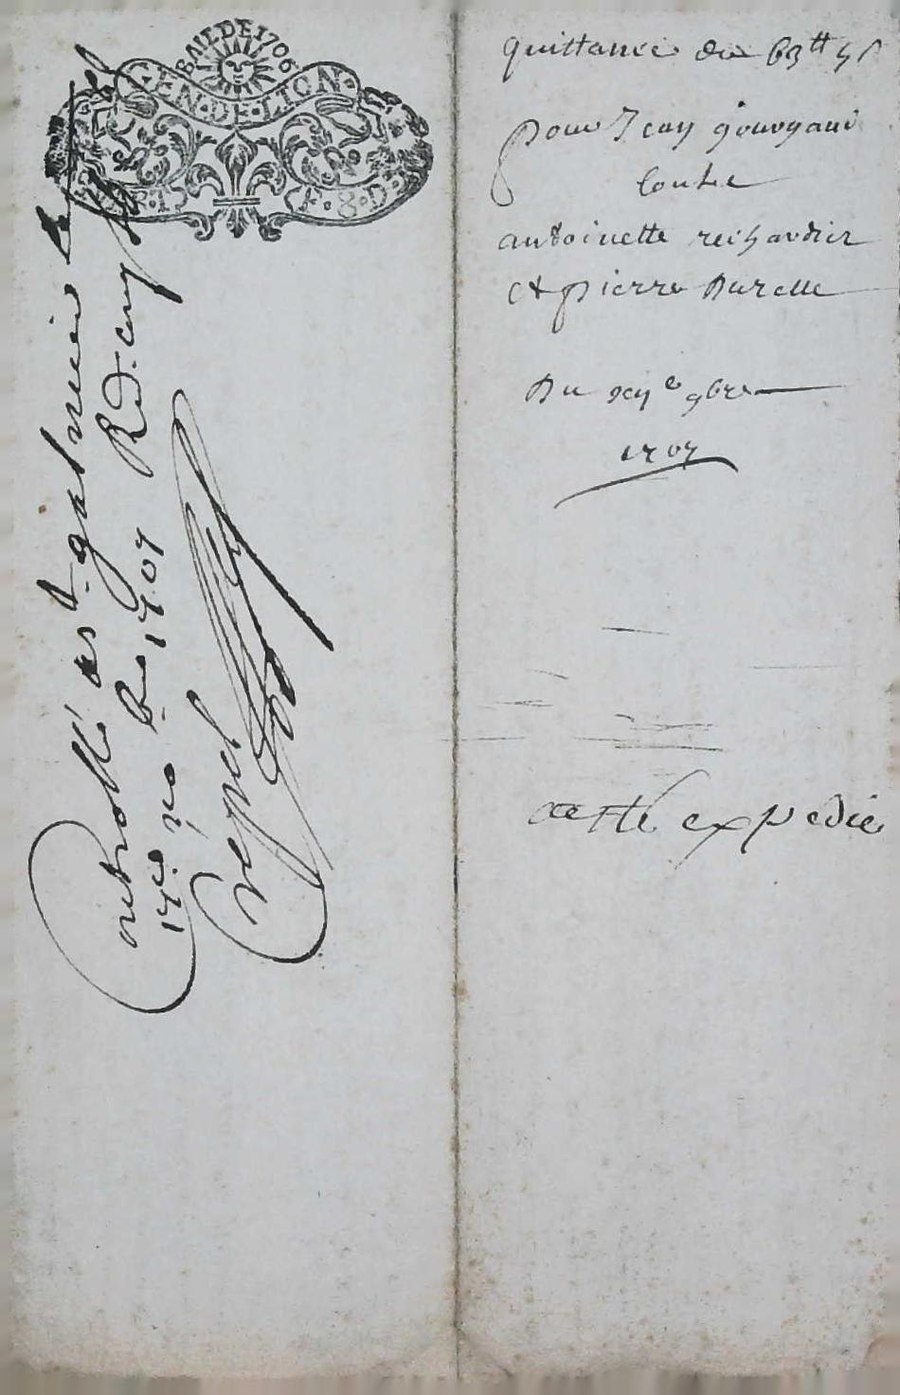 BAIL DE 1706
GEN·DE·LION
F·8·D
Controllé a St galmier le
17e 1707 Rd cinq s
quittance de 63tt 5s
pour Jean gouuyand
contre
antoinette reichardier
et pierre Durelle
Du xye 9bre
1707
a esté expedié